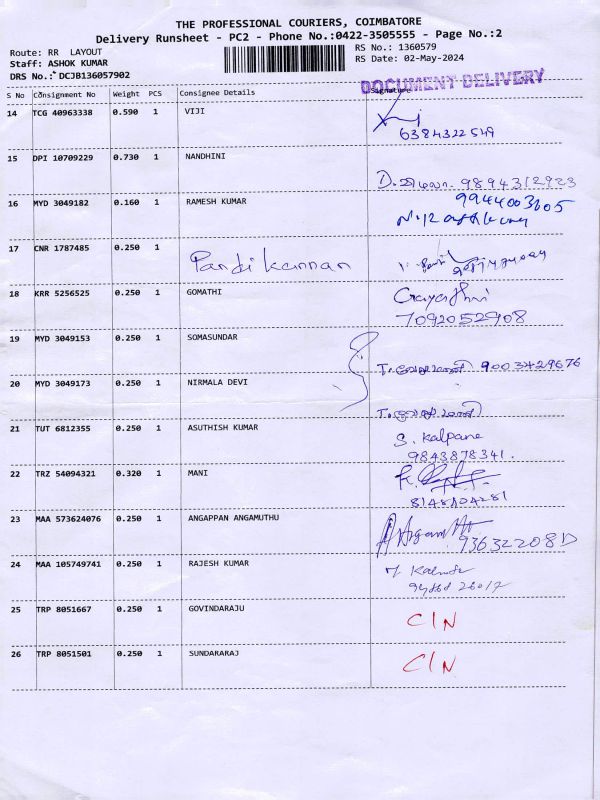 THE PROFESSIONAL COURIERS, COIMBATORE
Delivery Runsheet - PC2 - Phone No.:0422-3505555 - Page No.:2
Route: RR LAYOUT
RS No.: 1360579
Staff: ASHOK KUMAR
RS Date: 02-May-2024
DRS No.: DCJB136057902
DOCUMENT DELIVERY
S No Consignment No Weight PCS Consignee Details Signature
14 TCG 40963338 0.590 1 VIJI
6384322549
15 DPI 10709229 0.730 1 NANDHINI
D. விமலா 9894312923
16 MYD 3049182 0.160 1 RAMESH KUMAR
9944003605
17 CNR 1787485 0.250 1
Pandi kannan
18 KRR 5256525 0.250 1 GOMATHI
Gayathri
7092052908
19 MYD 3049153 0.250 1 SOMASUNDAR
T. 9003429676
20 MYD 3049173 0.250 1 NIRMALA DEVI
T.
21 TUT 6812355 0.250 1 ASUTHISH KUMAR
S. Kalpana
9843878341.
22 TRZ 54094321 0.320 1 MANI
23 MAA 573624076 0.250 1 ANGAPPAN ANGAMUTHU
24 MAA 105749741 0.250 1 RAJESH KUMAR
25 TRP 8051667 0.250 1 GOVINDARAJU
C/N
26 TRP 8051501 0.250 1 SUNDARARAJ
C/N